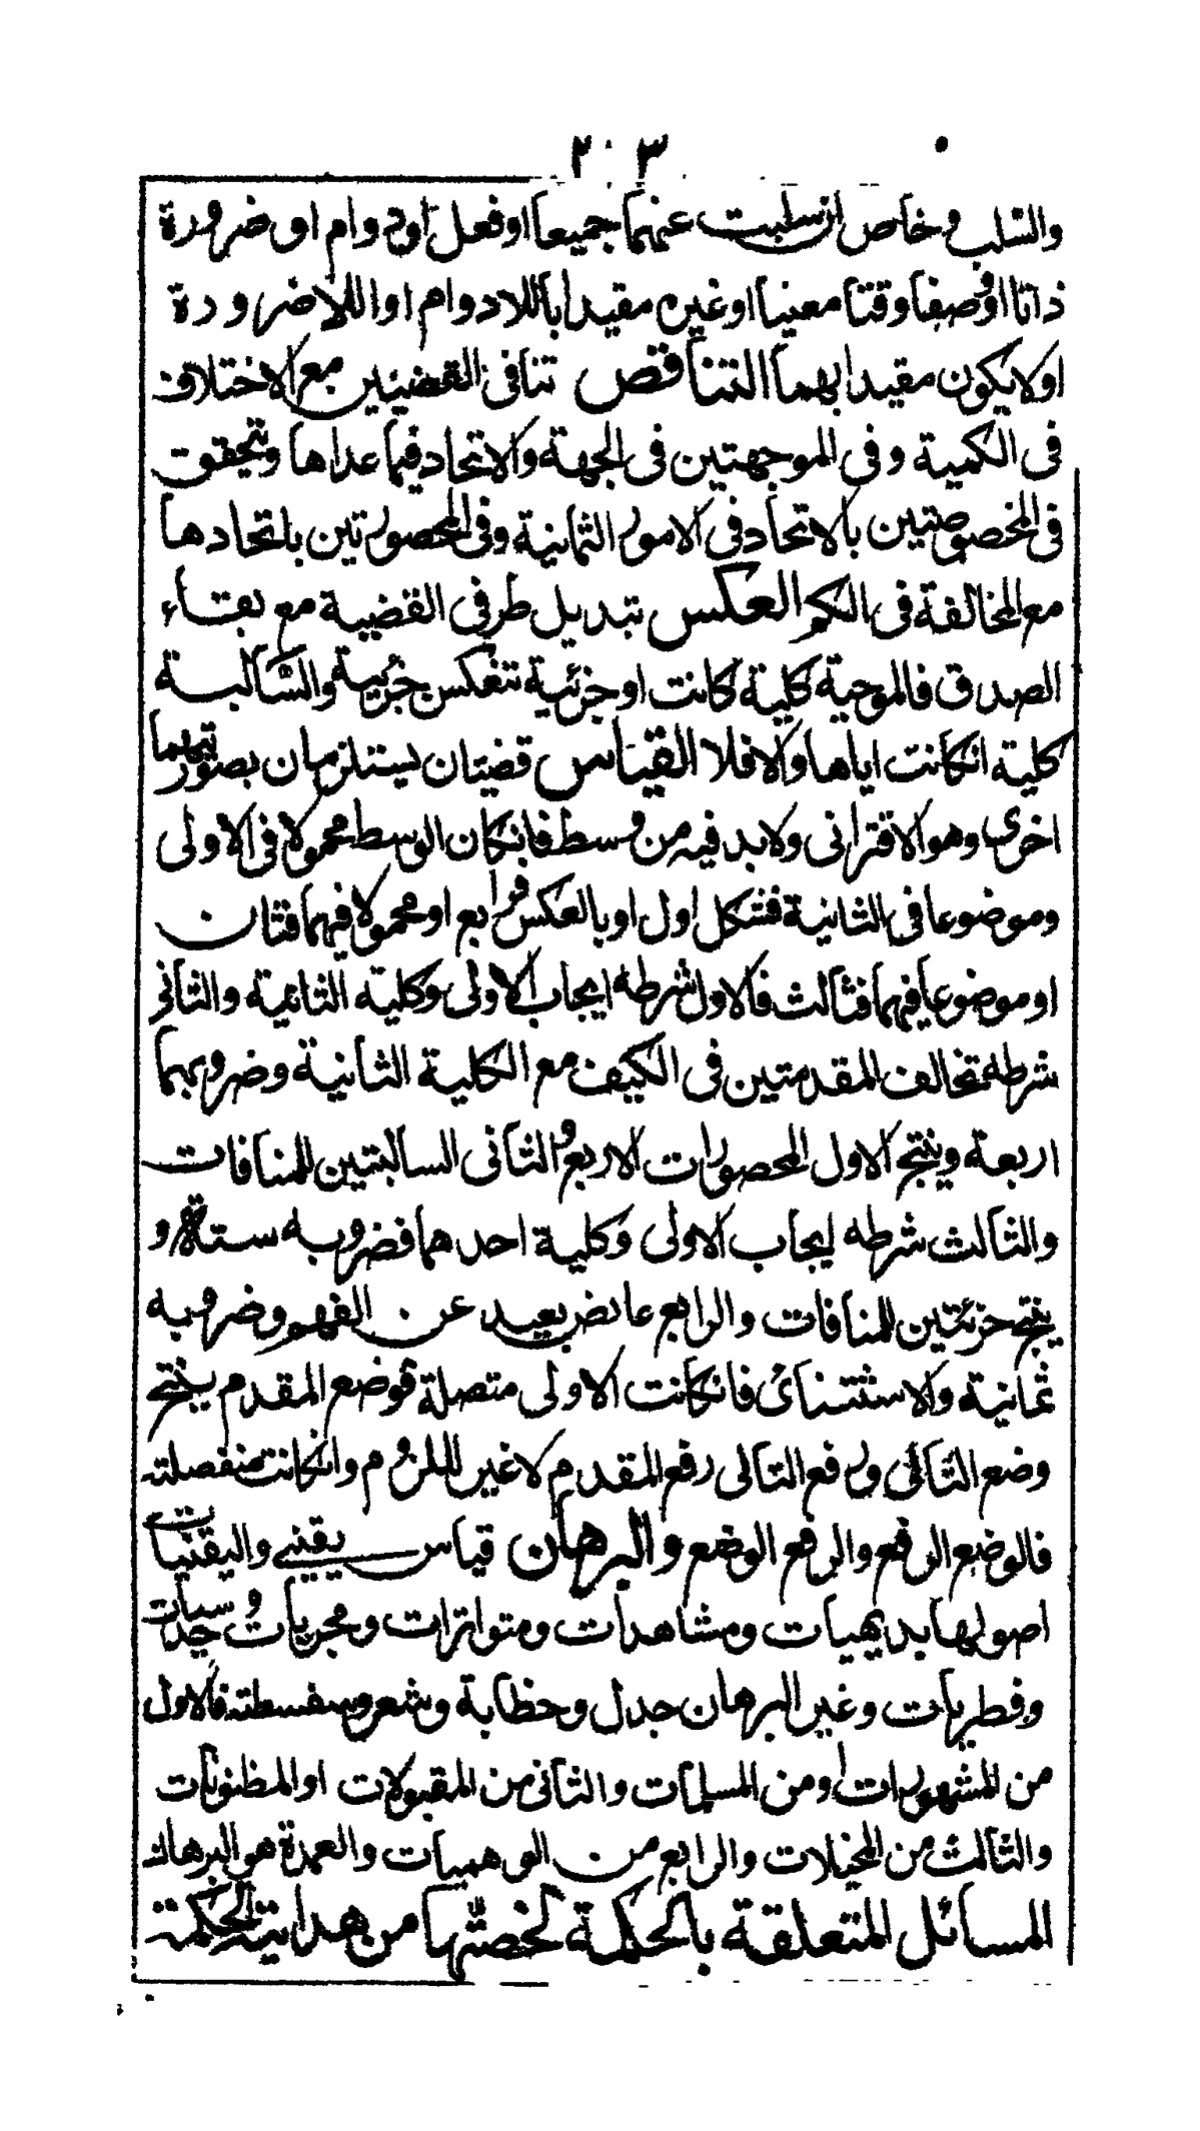 ٢٠٣
والسلب وخاص ان سلبت عنهما جميعا او فعل او دوام او ضرورة
ذاتا او وصفا وقتا معينا او غيره مقيدا باللادوام او اللاضرورة
اولا يكون مقيدا بهما التناقص تنافى القضيتين مع الاختلاف
فى الكمية وفى الموجهتين فى الجهة والاتحاد فيما عداها وتحقق
فى المخصوصتين بالاتحاد فى الامور الثمانية وفى المحصورتين باتحادها
مع المخالفة فى الكم العكس تبديل طرفى القضية مع بقاء
الصدق فالموجبة كلية كانت او جزئية تنعكس جزئية والسالبة
كلية انكانت اياها والا فلا القياس قضيتان يستلزمان بصورتيهما
اخرى وهو الاقترانى ولابد فيه من وسط فانكان الوسط محمولا فى الاولى
وموضوعا فى الثانية فشكل اول او بالعكس فرابع او محمولا فيهما فثان
او موضوعا فيهما فثالث فالاول شرطه ايجاب الاولى وكلية الثانية والثانى
شرطه تخالف المقدمتين فى الكيف مع الكلية الثانية وضروبهما
اربعة وينتج الاول المحصورات الاربع والثانى السالبتين للمنافات
والثالث شرطه ايجاب الاولى وكلية احدهما فضروبه ستة و
ينتج جزئتين للمنافات والرابع غامض بعيد عن الفهم وضروبه
ثمانية والاستثنائ فانكانت الاولى متصلة فوضع المقدم ينتج
وضع التالى ورفع التالى رفع المقدم لا غير للزوم وانكانت منفصلة
فالوضع الرفع والرفع الوضع والبرهان قياس يقينى واليقنيات
اصولها بديهيات ومشاهدات ومتواترات ومجربات وحدسيات
وفطريات وغير البرهان جدل وخطابة وشعر وسفسطة فالاول
من المشهورات او من المسلمات والثانى من المقبولات او المظنونات
والثالث من المخيلات والرابع من الوهميات والعمدة هو البرهان
المسائل المتعلقة بالحكمة لخصتها من هداية الحكمة